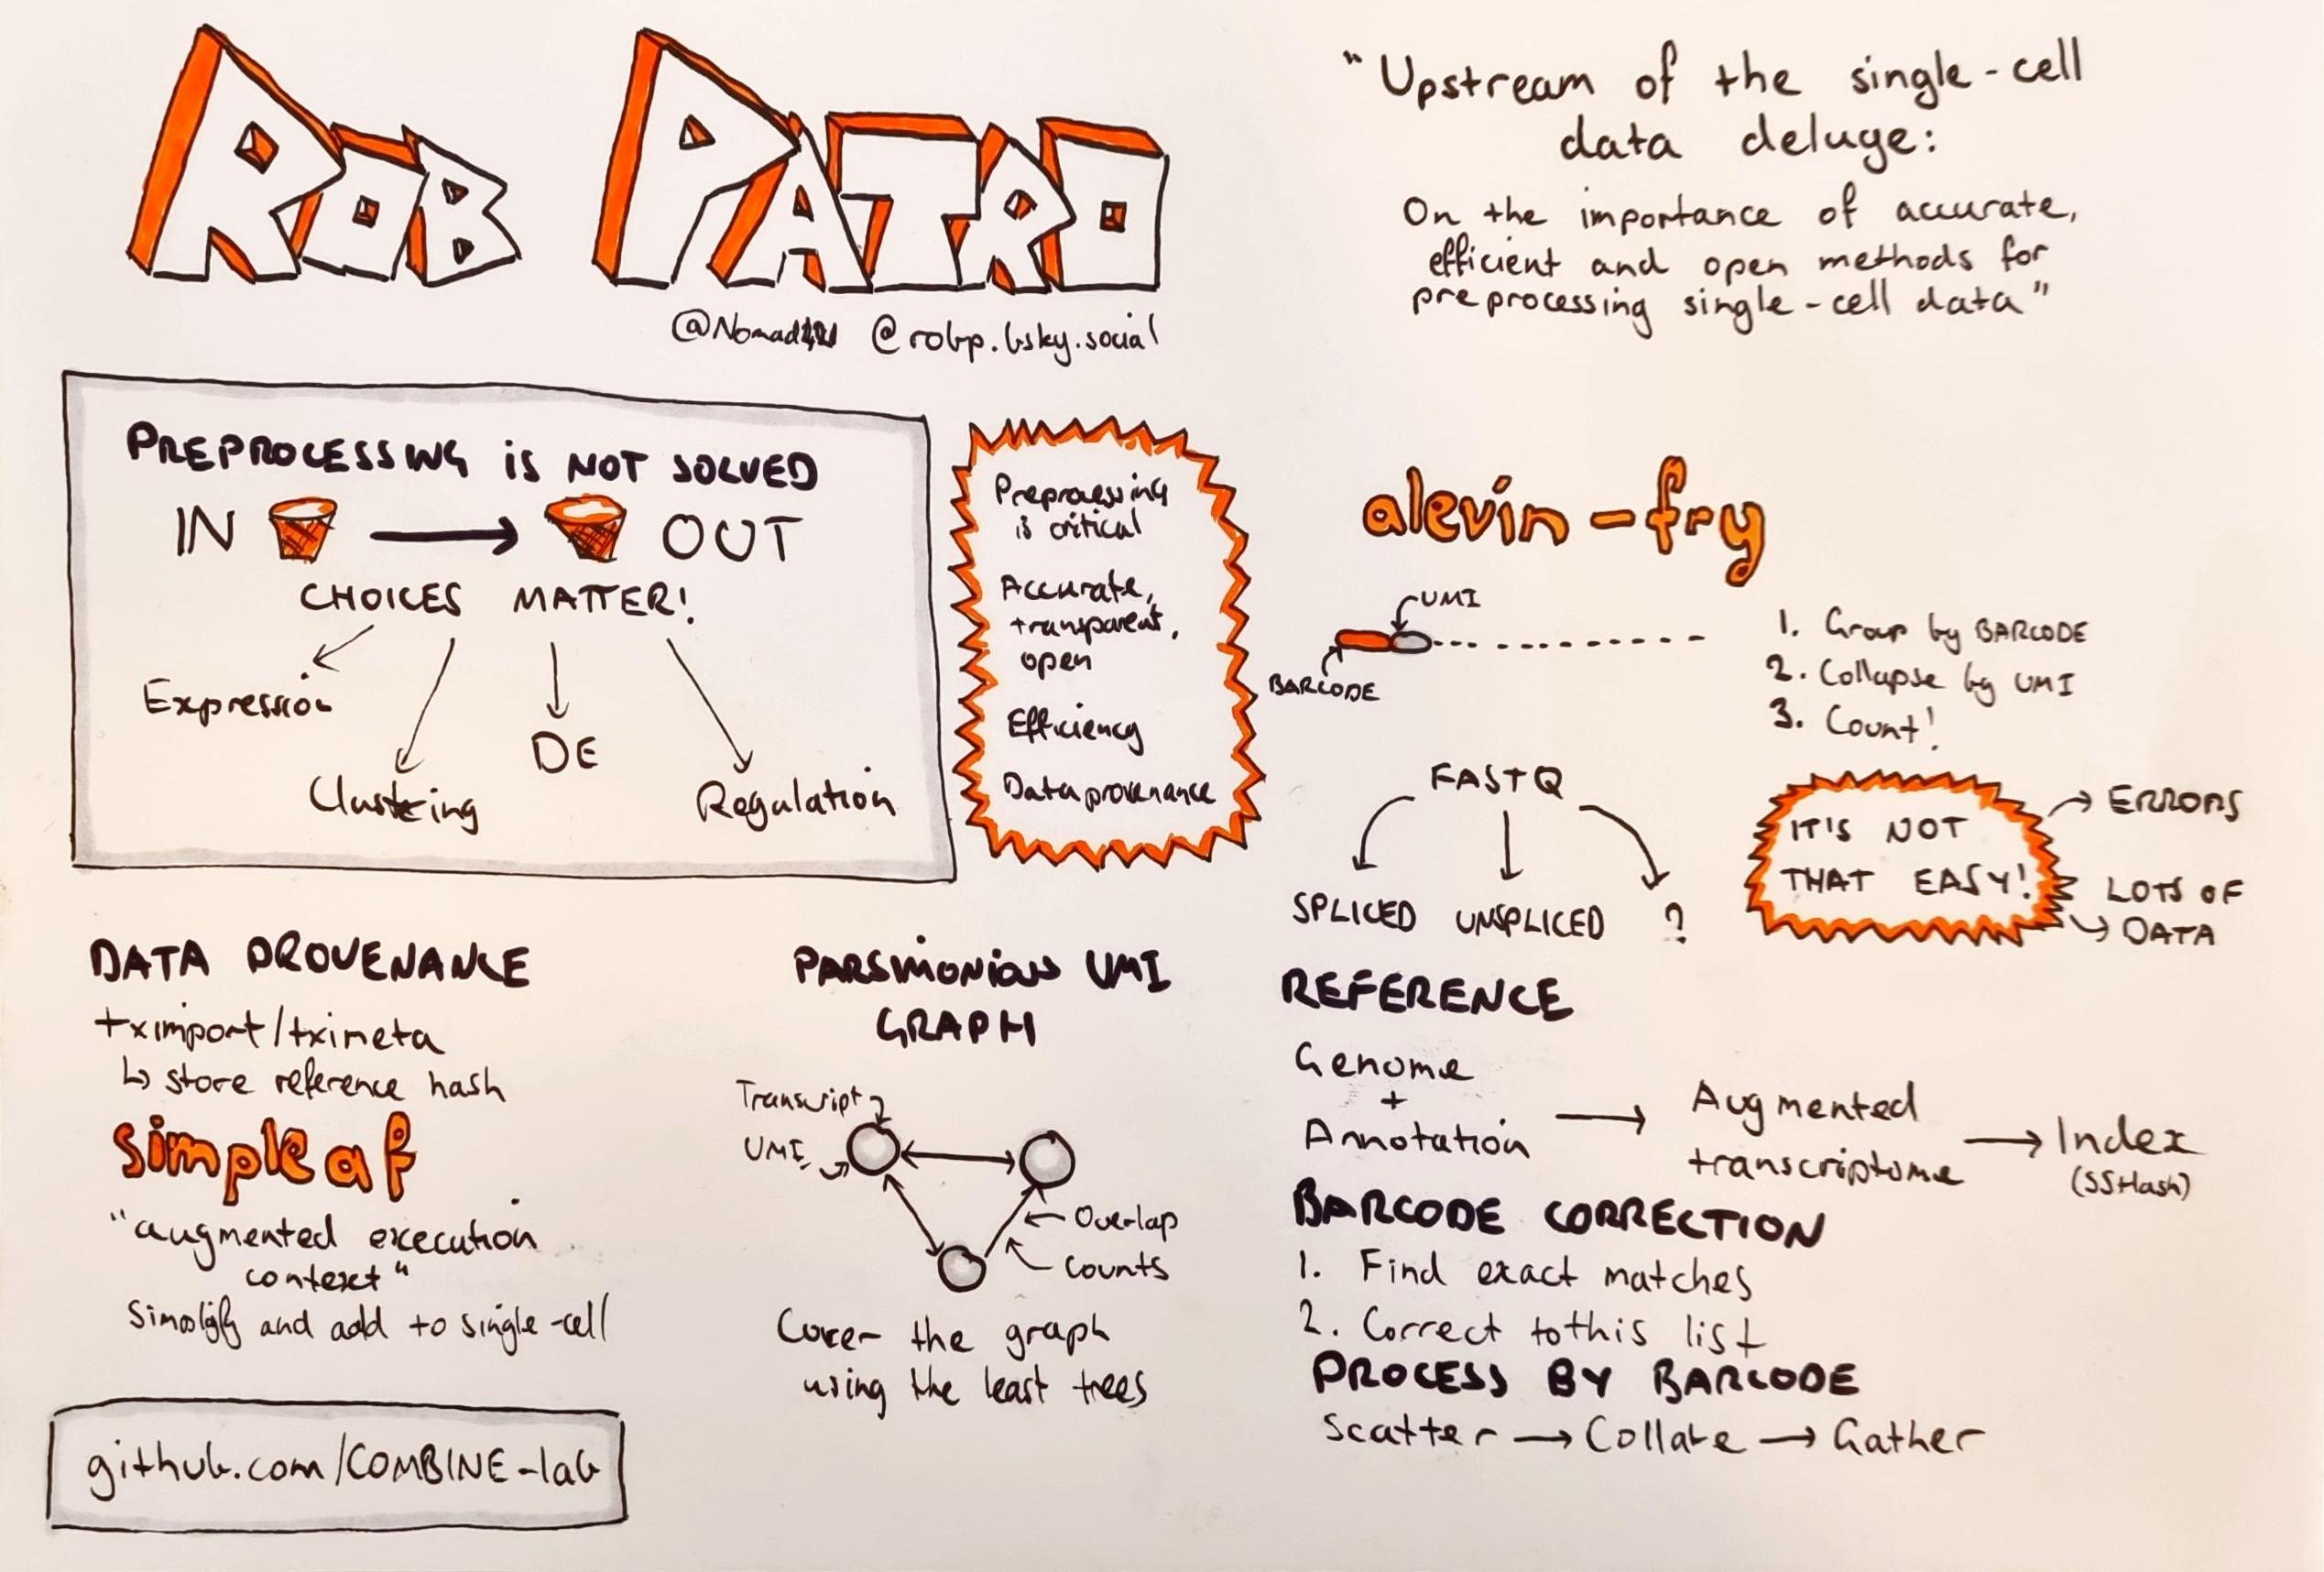 ROB PATRO
@robp.bsky.social
"Upstream of the single-cell
data deluge:
On the importance of accurate,
efficient and open methods for
preprocessing single-cell data"
PREPROCESSING is NOT SOLVED
IN OUT
CHOICES MATTER!
Expression
Clustering
DE
Regulation
Preprocessing
is critical
Accurate,
transparent,
open
Efficiency
Data provenance
alevin-fry
UMI
BARCODE
1. Group by BARCODE
2. Collapse by UMI
3. Count!
FASTQ
SPLICED UNSPLICED ?
IT'S NOT
THAT EASY!
ERRORS
LOTS OF
DATA
DATA PROVENANCE
tximport/tximeta
↳ store reference hash
simpleaf
"augmented execution
context"
Simplify and add to single-cell
github.com/COMBINE-lab
PARSIMONIOUS UMI
GRAPH
Transcript
UMI
Overlap
Counts
Cover the graph
using the least trees
REFERENCE
Genome
+
Annotation
Augmented
transcriptome
Index
(SSHash)
BARCODE CORRECTION
1. Find exact matches
2. Correct to this list
PROCESS BY BARCODE
Scatter → Collate → Gather